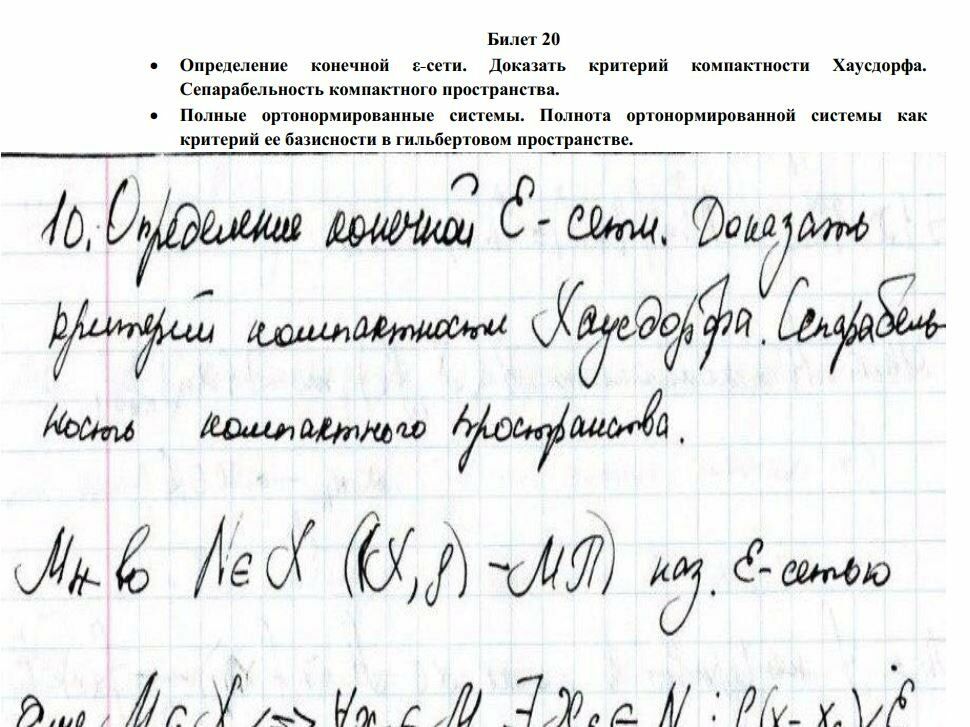 Билет 20
• Определение конечной ε-сети. Доказать критерий компактности Хаусдорфа.
Сепарабельность компактного пространства.
• Полные ортонормированные системы. Полнота ортонормированной системы как
критерий ее базисности в гильбертовом пространстве.
10. Определение конечной Ɛ-сети. Доказать
критерий компактности Хаусдорфа. Сепарабель
ность компактного пространства.
Мн-во Nε X ((X, ρ) - МП) наз. Ɛ-сетью
M ⊂ X <=> ∀x ∈ M ∃ xε ∈ N : ρ(x - xε) < Ɛ